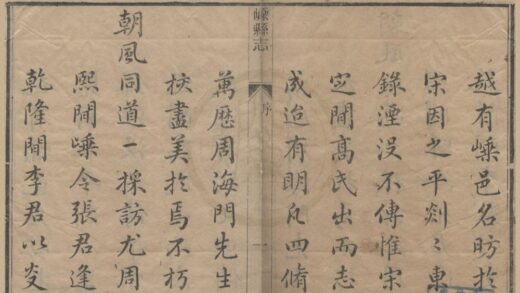 越有嵊邑名昉於
宋因之平剡〻東
錄湮没不傳惟宋
㝎間髙氏出而志
成迨有明凡四脩
嵊縣志
序
一
萬歷周海門先生
挍盡美扵焉不朽
朝風同道一採訪尤周
熙間嵊令張君逢
乾隆間李君以炎